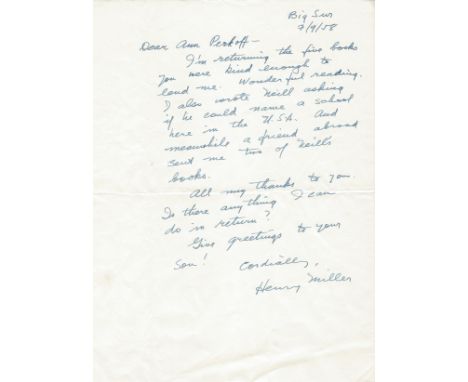 Big Sur
7/9/58
Dear Ann Perkoff –
I'm returning the five books
you were kind enough to
lend me. Wonderful reading.
I also wrote Neill asking
if he could name a school
here in the U.S.A. And
meanwhile a friend abroad
sent me two of Neill's
books.
All my thanks to you.
Is there anything I can
do in return?
Give greetings to your
son!
Cordially,
Henry Miller